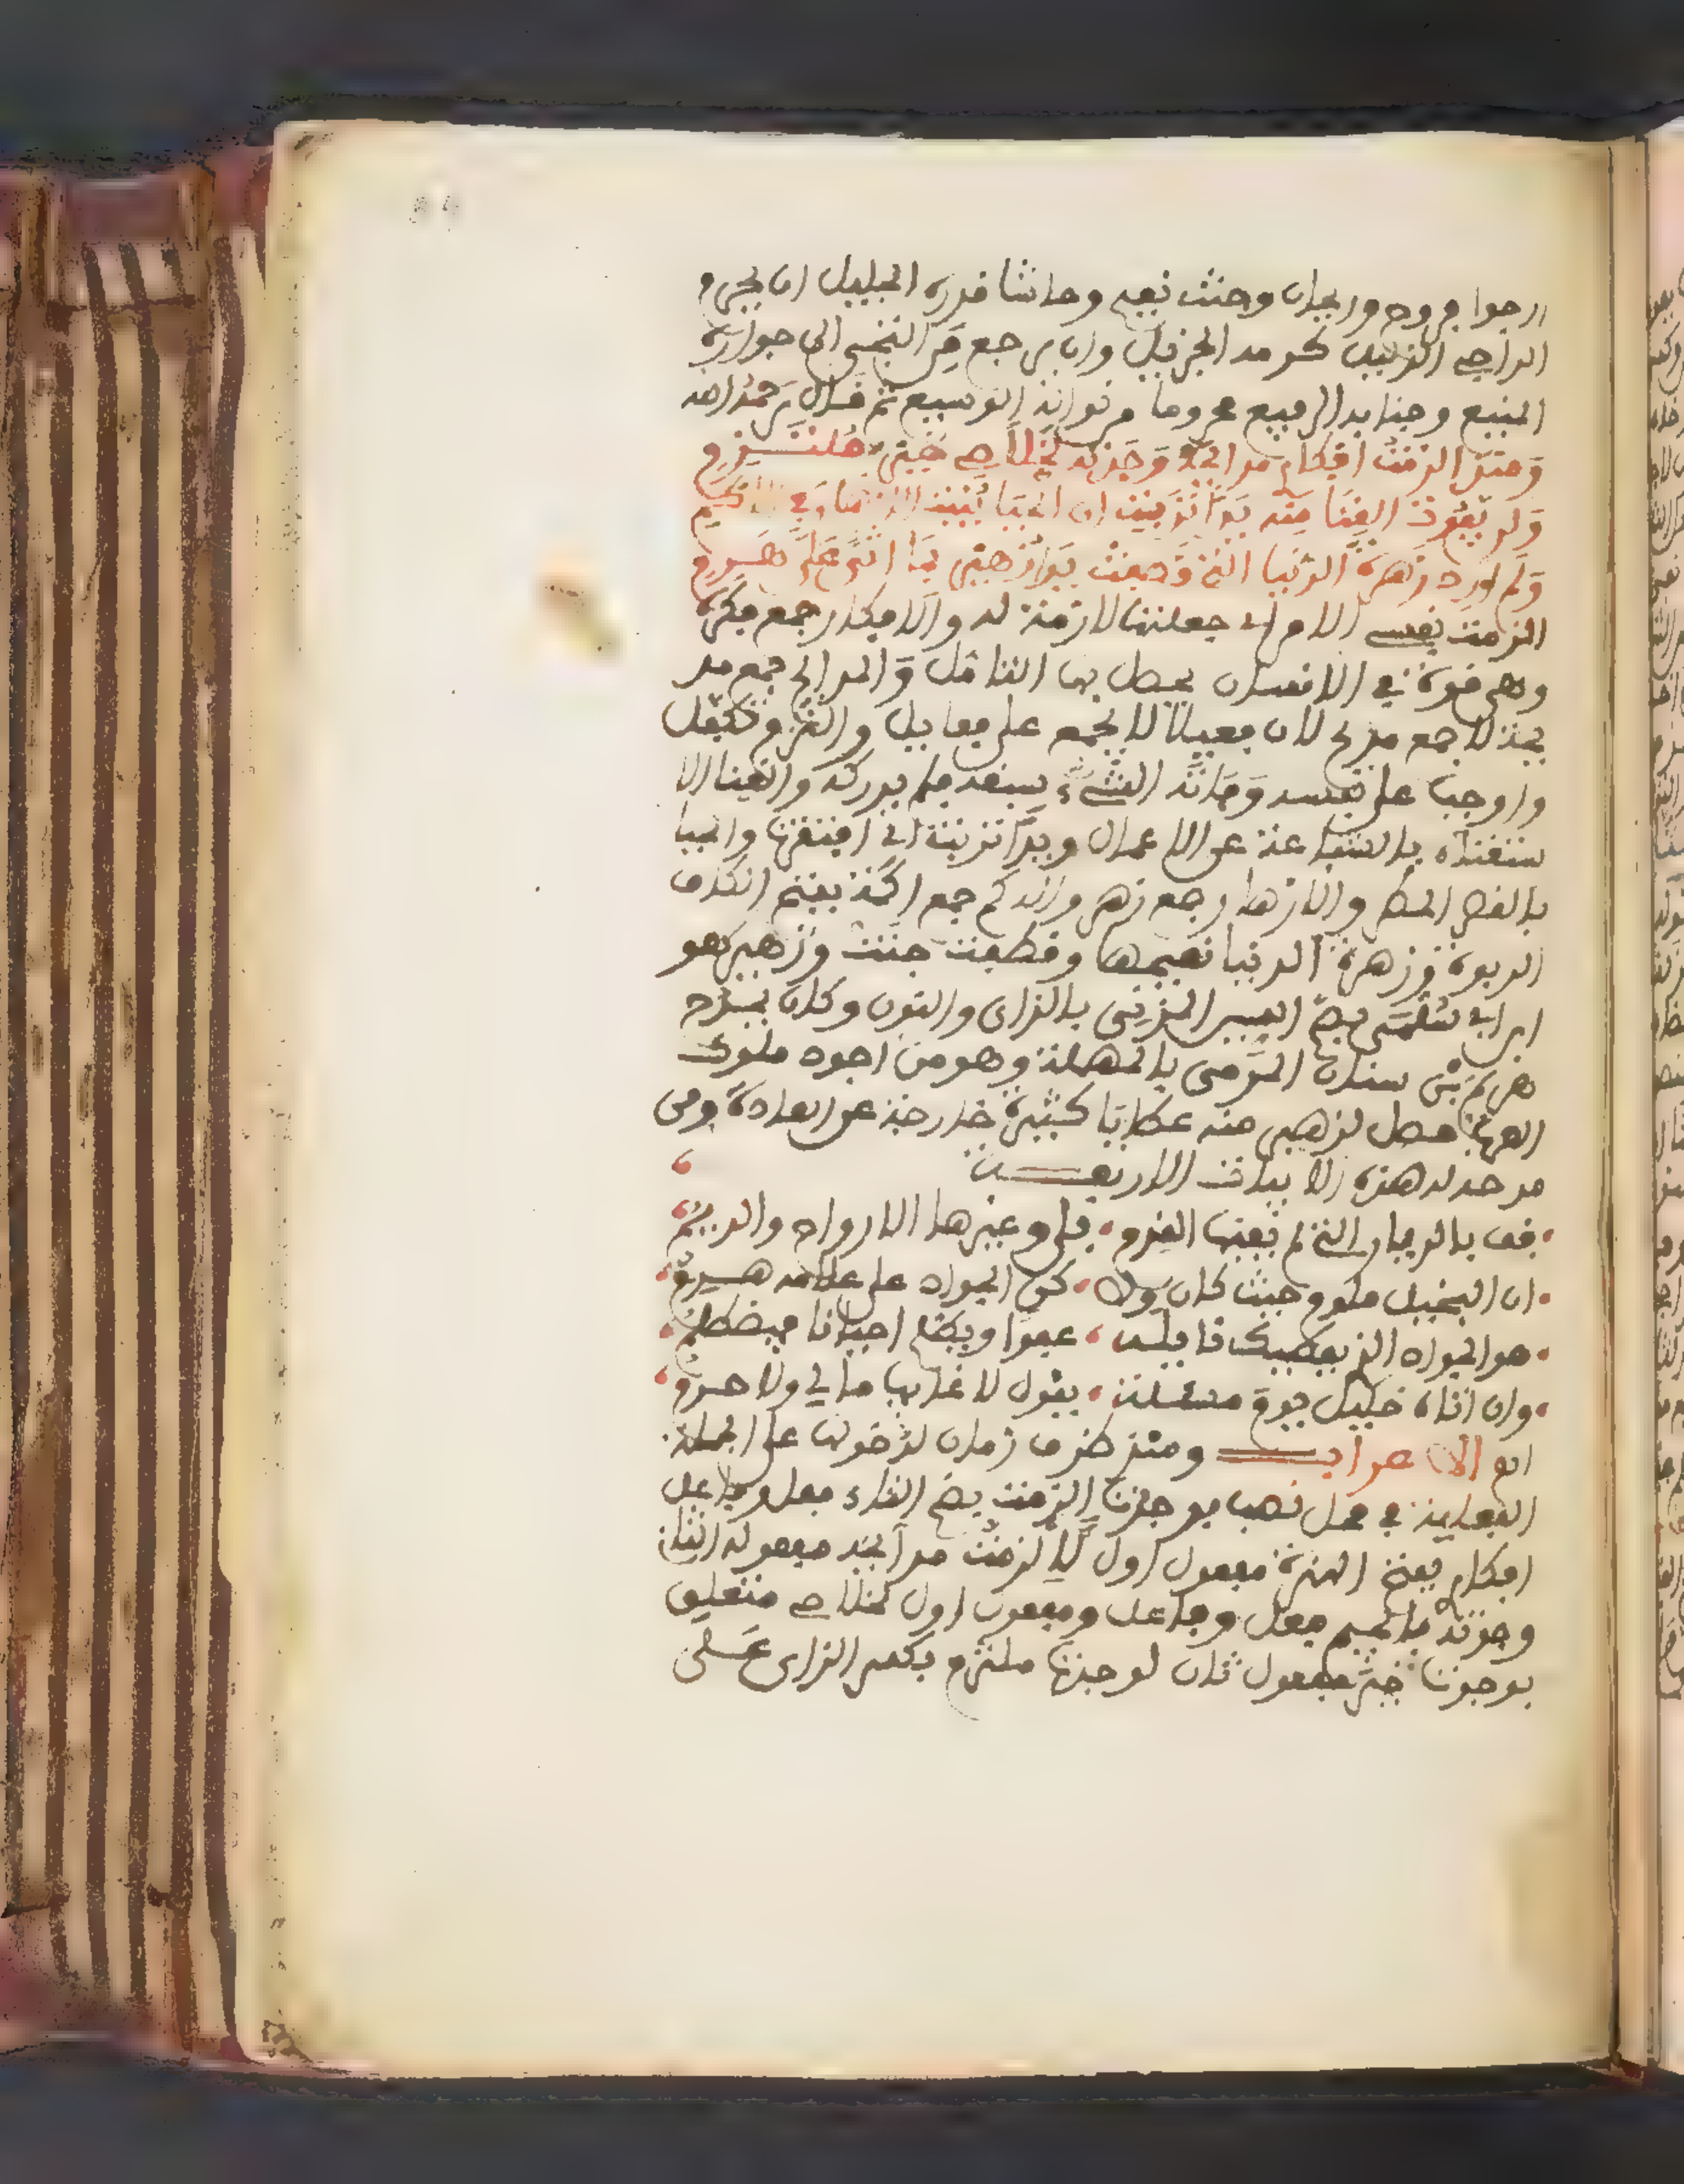 ارجوا بروح وريحان وجنت نعيم وحاشا قدره الجليل ان يحرم
الراجي الذليل كرمه الجزيل وان يرجع من التجى الى جواره
المنيع وجنابه الرفيع محروما من نواله الوسيع ثم قال رحمه الله
وَمنذ الزمتُ افكاري مدائحه وَجدته لخلاصي خير ملتزم
وَلن يفوت الغنا منه يدا تربت ان الحيا ينبت الازهار في الاكم
وَلم ارد زهرة الدنيا التي اقتطفت يدا زهير بما اثنى على هرم
الزمت نفسي الامر اي جعلتها لازمة له والافكار جمع فكرة
وهي قوة في الانسان يحصل بها التامل وَالمدائح جمع مد
يحة لا جمع مدح لان فعيلا لا يجمع على فعايل والتزم تكفل
واوجب على نفسه وَفاته الشيء سبقه فلم يدركه وَالغنا الا
ستغناء بالشفاعة عن الاعمال ويدا تربت اي افتقرت والحيا
بالقصر المطر والازهار جمع زهر والاكم جمع اكمة بفتح الكاف
الربوة وزهرة الدنيا نعيمها وقطفت جنت وزهير هو
ابن ابي سُلمى بضم السين المزني بالزاى والنون وكان يمدح
هرِم بن سنان المرّي بالمهملة وهو من اجود ملوك
العرب حصل لزهير منه عطايا كثيرة خارجة عن العادة ومن
مدحه له هذه الابيات الاربعــة
قف بالديار التي لم يعفها القدم بلى وغيرها الارواح والديم
ان البخيل ملوم حيث كان ولا كن الجواد على علاته هــرم
هو الجواد الذي يعطيك نايله عفوا ويظلم احيانا فيظلم
وان اتاه خليل يوم مسئلة يقول لا غايب مالي ولا حــرم
الاعراب ومنذ ظرف زمان لدخولها على الجملة
الفعلية في محل نصب بوجدت الزمت بضم التاء فعل وفاعل
افكاري بفتح الهمزة مفعول اول لالزمت مدائحه مفعوله الثاني
وجدته بالجيم فعل وفاعل ومفعول اول لخلاصي متعلق
بوجدت خير مفعول ثان لوجدت ملتزم بكسر الزاى عــلى